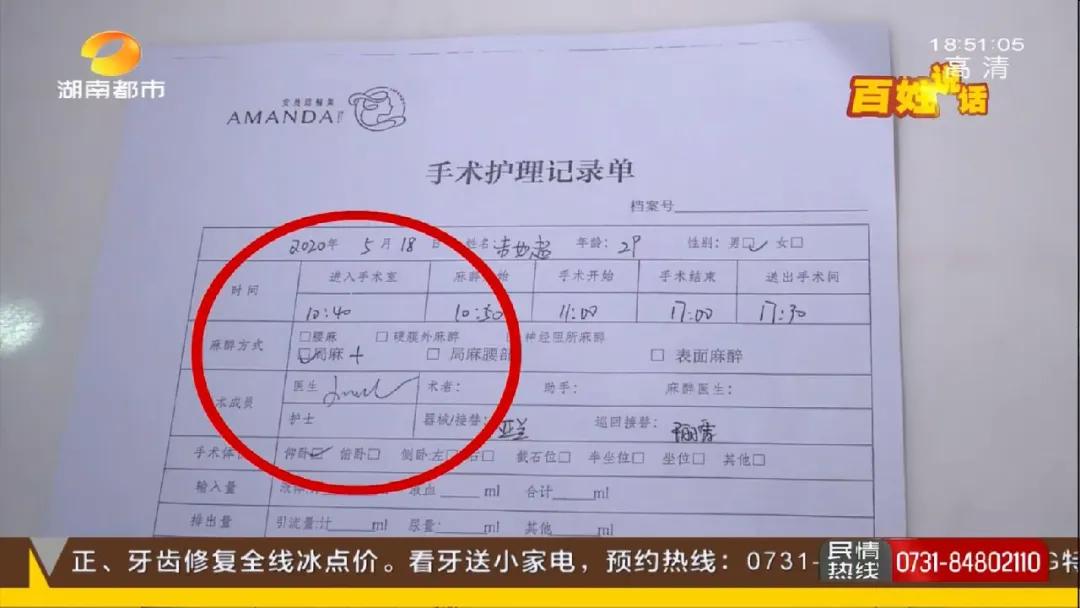 18:51:05
高清
湖南都市
百姓说话
AMANDA
手术护理记录单
档案号
2020年 5月 18日 姓名: 年龄: 29 性别: 男□ 女□
时间 进入手术室 麻醉开始 手术开始 手术结束 送出手术间
10:40 10:50 11:00 17:00 17:30
麻醉方式 □腰麻 □硬膜外麻醉 □神经阻所麻醉
□局麻 + □局麻腰部 □表面麻醉
术成员 医生 术者: 助手: 麻醉医生:
护士 器械/接替: 巡回接替:
手术体位 仰卧□ 俯卧□ 侧卧:左□右□ 截石位□ 半坐位□ 坐位□ 其他□
输入量 ml 合计 ml
排出量 引流量:计 ml 尿量: ml 其他 ml
正、牙齿修复全线冰点价。看牙送小家电，预约热线：0731-
民情热线 0731-84802110
G特